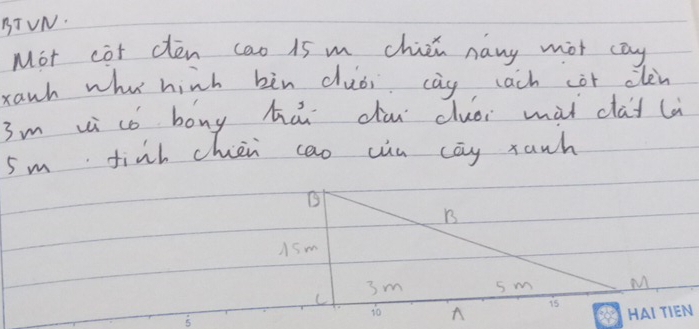 BTVN.
Một cột đèn cao 15 m chiếu sáng một cây
xanh như hình bên dưới. cây cách cột đèn
3m và có bóng trải dài dưới mặt đất là
5m. tính chiều cao của cây xanh
D
B
15m
3m
5m
M
C
A
5
10
15
HAI TIEN